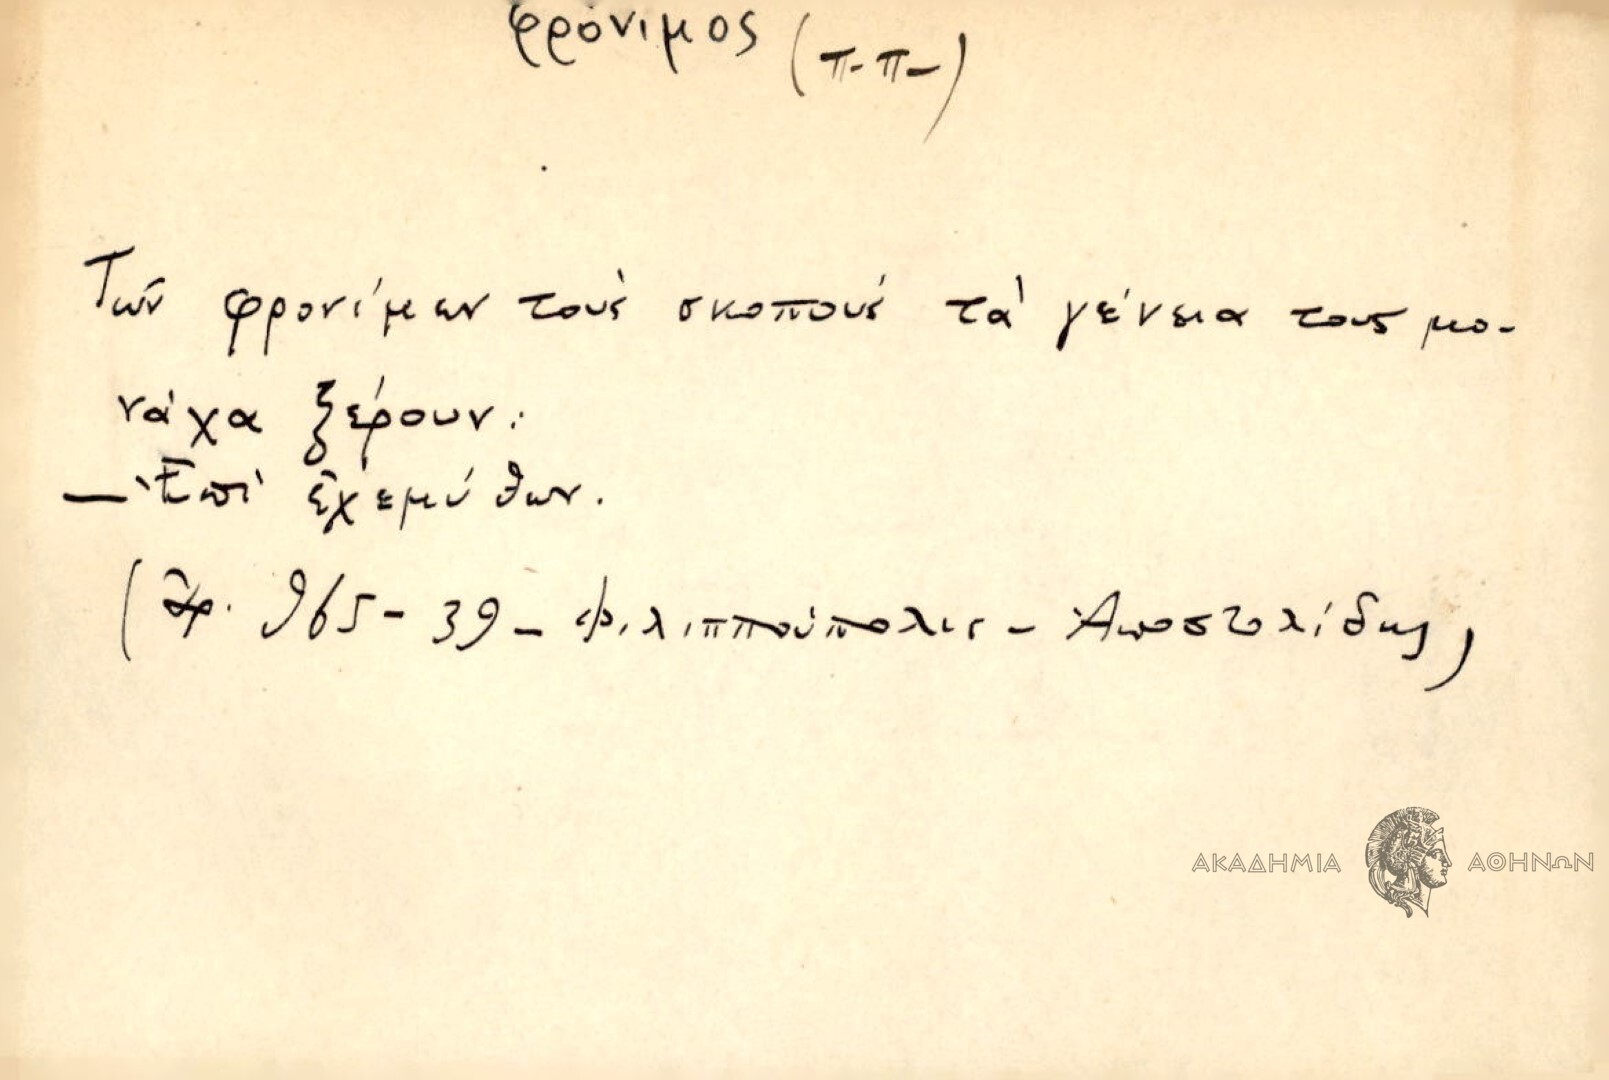 φρόνιμος (π.π.)
Τῶν φρονίμων τοὺς σκοποὺς τὰ γένεια τους μο-
νάχα ξέρουν.
— Ἐπὶ ἐχεμύθων.
(ἀρ. 965-39 - Φιλιππούπολις - Ἀποστολίδης)
ΑΚΑΔΗΜΙΑ ΑΘΗΝΩΝ